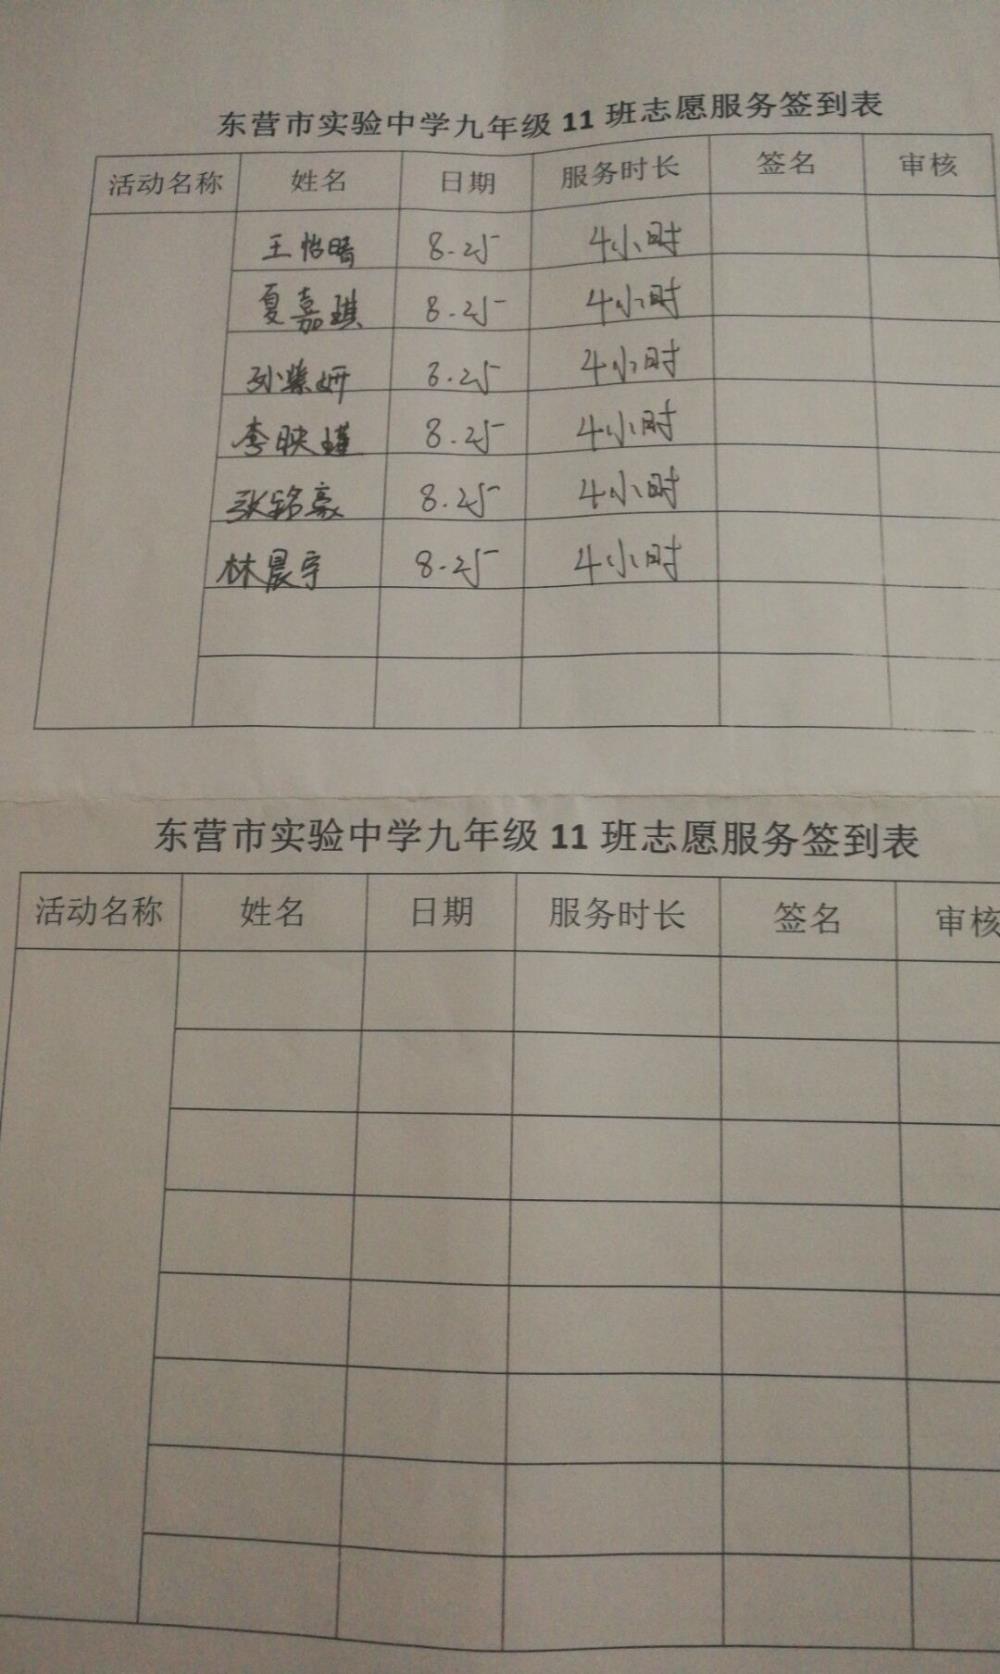 东营市实验中学九年级 11 班志愿服务签到表
活动名称 姓名 日期 服务时长 签名 审核
王怡晴 8.25 4小时
夏嘉琪 8.25 4小时
孙紫妍 8.25 4小时
李映瑾 8.25 4小时
张铭豪 8.25 4小时
林晨宇 8.25 4小时
东营市实验中学九年级 11 班志愿服务签到表
活动名称 姓名 日期 服务时长 签名 审核